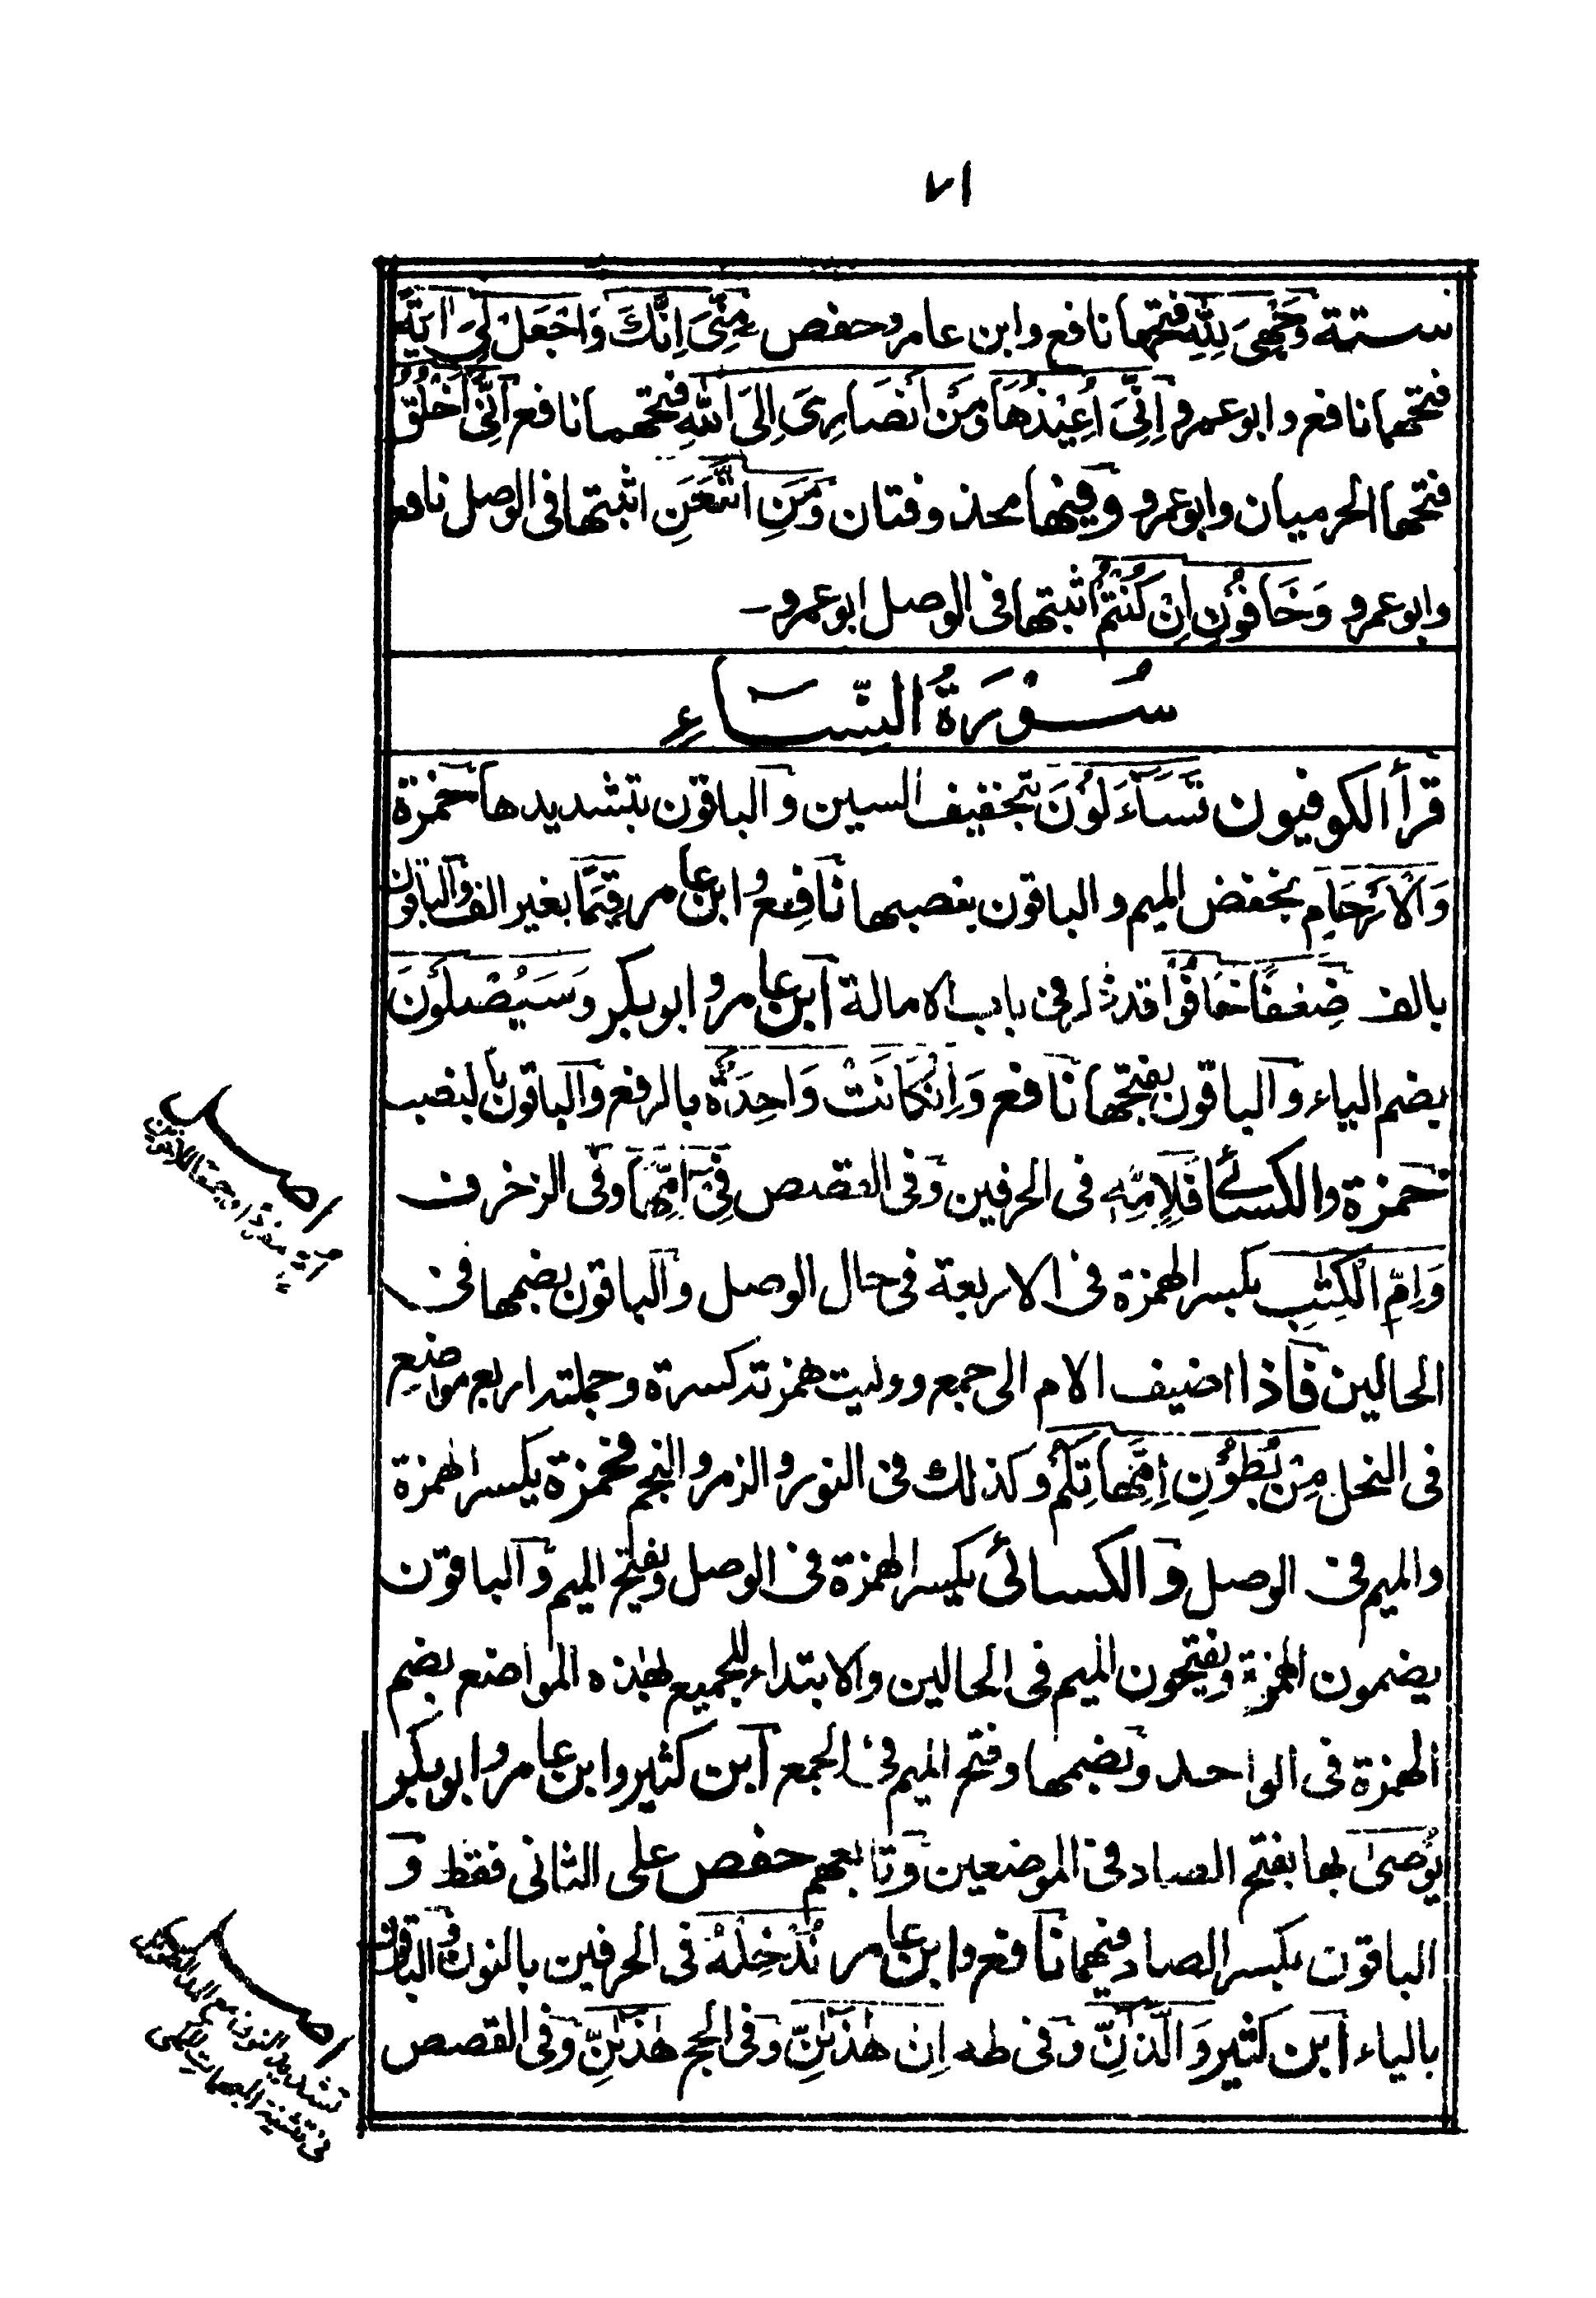 ٧١
ستة وَجْهِىَ لِلّٰهِ فتحها نافع وابن عامر وحفص مِنِّىَ اِنَّكَ وَاجْعَلْ لِىَ اٰيَةً
فتحهما نافع وابو عمرو اِنِّىَ اُعِيْذُهَا وَمَنْ اَنْصَارِىَ اِلَى اللّٰهِ فتحهما نافع اَنِّىَ اَخْلُقُ
فتحها الحرميان وابو عمرو وفيها محذوفتان وَمَنِ اتَّبَعَنِ اثبتها فى الوصل نافع
وابو عمرو وَخَافُوْنِ اِنْ كُنْتُمْ اثبتها فى الوصل ابو عمرو ـ
سُوْرَةُ النِّسَاءِ
قرأ الكوفيون تَسَآءَلُوْنَ بتخفيف السين والباقون بتشديدها حمزة
وَالْاَرْحَامِ بخفض الميم والباقون بنصبها نافع وابن عامر قِيَمًا بغير الف والباقون
بالف ضِعٰفًا خَافُوْا قد ذكر فى باب الامالة ابن عامر وابو بكر وَسَيُصْلَوْنَ
بضم الياء والباقون بفتحها نافع وَاِنْ كَانَتْ وَاحِدَةٌ بالرفع والباقون بالنصب
حمزة والكسائى فَلِاِمِّهِ فى الحرفين وفى القصص فِىْ اِمِّهَا وفى الزخرف
وَاِمِّ الْكِتٰبِ بكسر الهمزة فى الاربعة فى حال الوصل والباقون بضمها فى
الحالين فاذا اضيف الام الى جمع ووليت همزته كسرة وجملته اربع مواضع
فى النحل مِنْ بُطُوْنِ اِمِّهَاتِكُمْ وكذلك فى النور والزمر والنجم فحمزة يكسر الهمزة
والميم فى الوصل والكسائى يكسر الهمزة فى الوصل ويفتح الميم والباقون
يضمون الهمزة ويفتحون الميم فى الحالين والابتداء للجميع لهذه المواضع بضم
الهمزة فى الواحد وبضمها وفتح الميم فى الجمع ابن كثير وابن عامر وابو بكر
يُوْصٰى بها بفتح الصاد فى الموضعين وتابعهم حفص على الثانى فقط و
الباقون بكسر الصاد فيهما نافع وابن عامر نُدْخِلْهُ فى الحرفين بالنون والباقون
بالياء ابن كثير وَالَّذٰنِّ وفى طه اِنْ هٰذٰنِّ وفى الحج هٰذٰنِّ وفى القصص
تشديد النون مع المد
فى تثنية المبهمات للمكى